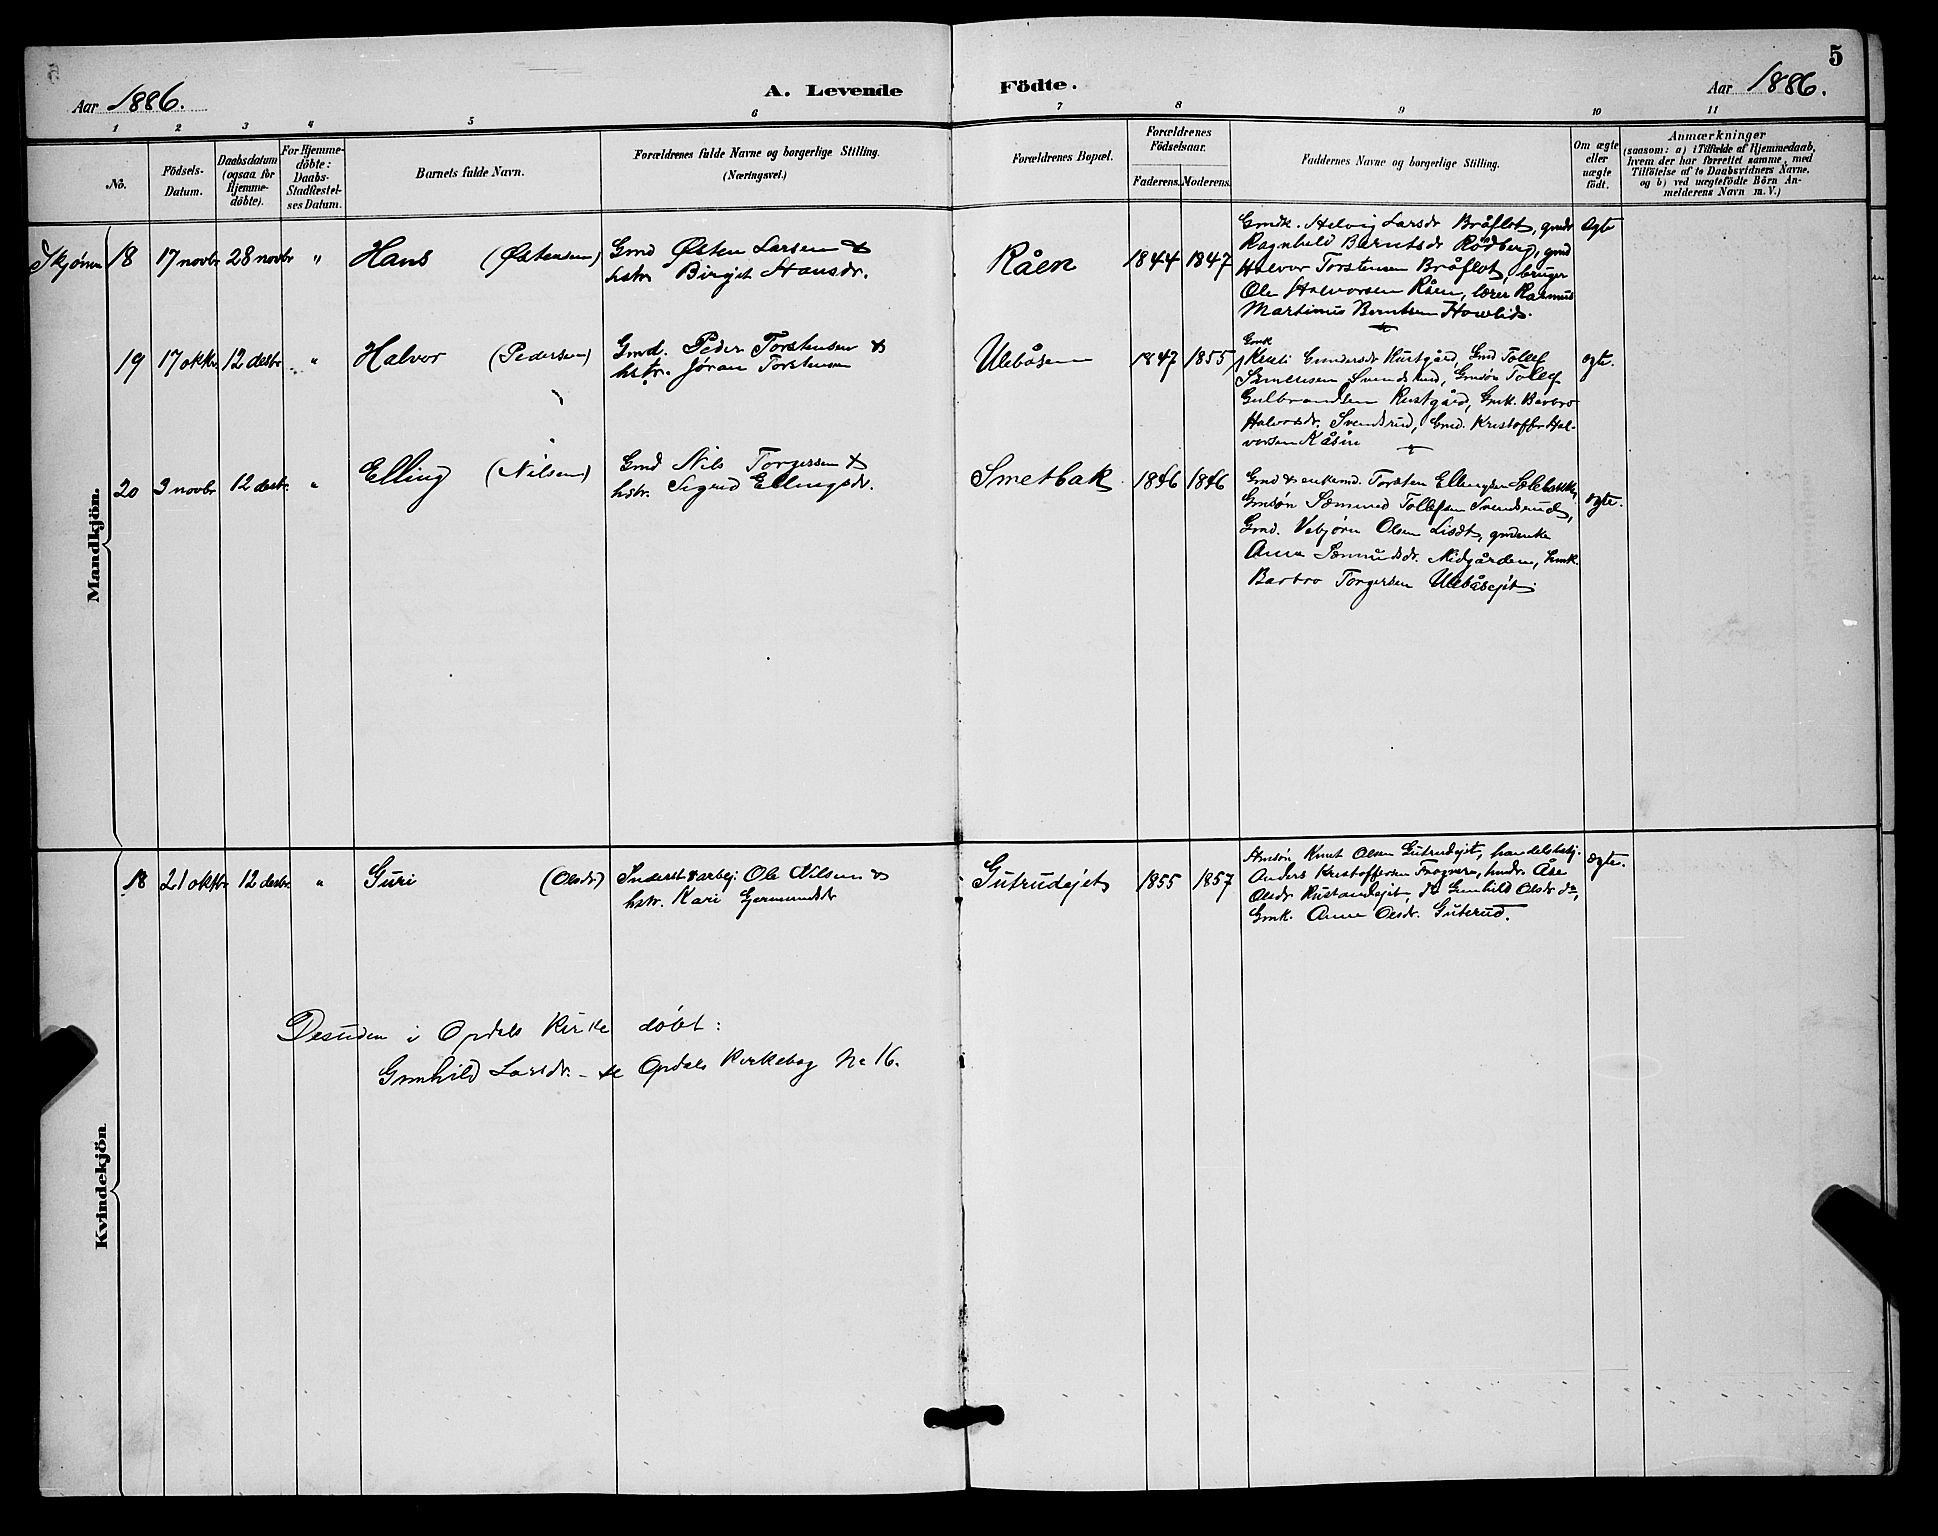 5
Aar 1886.
A. Levende Födte.
Aar 1886.
1 2 3 4 5 6 7 8 9 10 11
No.
Födsels-
Datum.
Daabsdatum
(ogsaa for
Hjemme-
döbte).
For Hjemme-
döbte:
Daabs-
Stadfæstel-
ses Datum.
Barnets fulde Navn.
Forældrenes fulde Navne og borgerlige Stilling.
(Næringsvei.)
Forældrenes Bopæl.
Forældrenes
Födselsaar.
Faderens. Moderens.
Faddernes Navne og borgerlige Stilling.
Om ægte
eller
uægte
födt.
Anmærkninger
(saasom: a) i Tilfælde af Hjemmedaab,
hvem der har forrettet samme, med
Tilföielse af to Daabsvidners Navne,
og b) ved uægtefödte Börn An-
melderens Navn m. V.)
Mandkjön.
18 17 novbr 28 novbr " Hans (Østensen)
Gmd Østen Larsen &
hstr Birgit Hansdr.
Råen 1844 1847
Gmdk. Helvig Larsdr Bråflot, gmdr
Ragnhild Berntsdr Rødberg, gmd
Halvor Torstensen Bråflot, bruger
Ole Halvorsen Råen, lærer Rasmus
Martinus Berntsen
ægte
19 17 oktbr 12 desbr " Halvor (Pedersen)
Gmd. Peder Torstensen &
hstr. Jøran Torstensen
Ulebåsen 1847 1855
Gmk
Gundersdr Rustgård, Gmd Tollef
Svendsrud, Gmdsøn Tollef
Gulbrandsen Rustgård, Gmk. Barbro
Halvorsdr. Svendsrud, Gmd. Kristoffer Hal-
vorsen Kåsin
ægte.
20 3 novbr 12 desbr. " Elling (Nilsen)
Gmd Nils Torgersen &
hstr. Sigrid Ellingsdr.
Smetbak 1846 1846
Gmd & enkemd. Torsten Ellingsen
Gmdsøn Sæmund Tollefsen Svendsrud,
Gmd. Vebjørn Olsen Lislt, gmdenke
Anne Sæmundsdr. Midgården, Gmk.
Barbro Torgersen Ulebåsejet
ægte.
Kvindekjön
18 21 oktbr 12 desbr " Guri (Olsdr)
Inderst & arbej: Ole Nilsen &
hstr. Kari Gjermundsdr
Gutrudejet 1855 1857
Knut Olsen Gutrudejet, handelsbetj.
Anders Kristoffersen Fragnere, Åse
Olsdr Rustandejet, do Gunhild Olsdr do,
Gmk. Anne Olsdr. Guterud.
ægte.
Desuden i Opdals Kirke døbt:
Gunhild Larsdr. – se Opdals Kirkebog No 16.